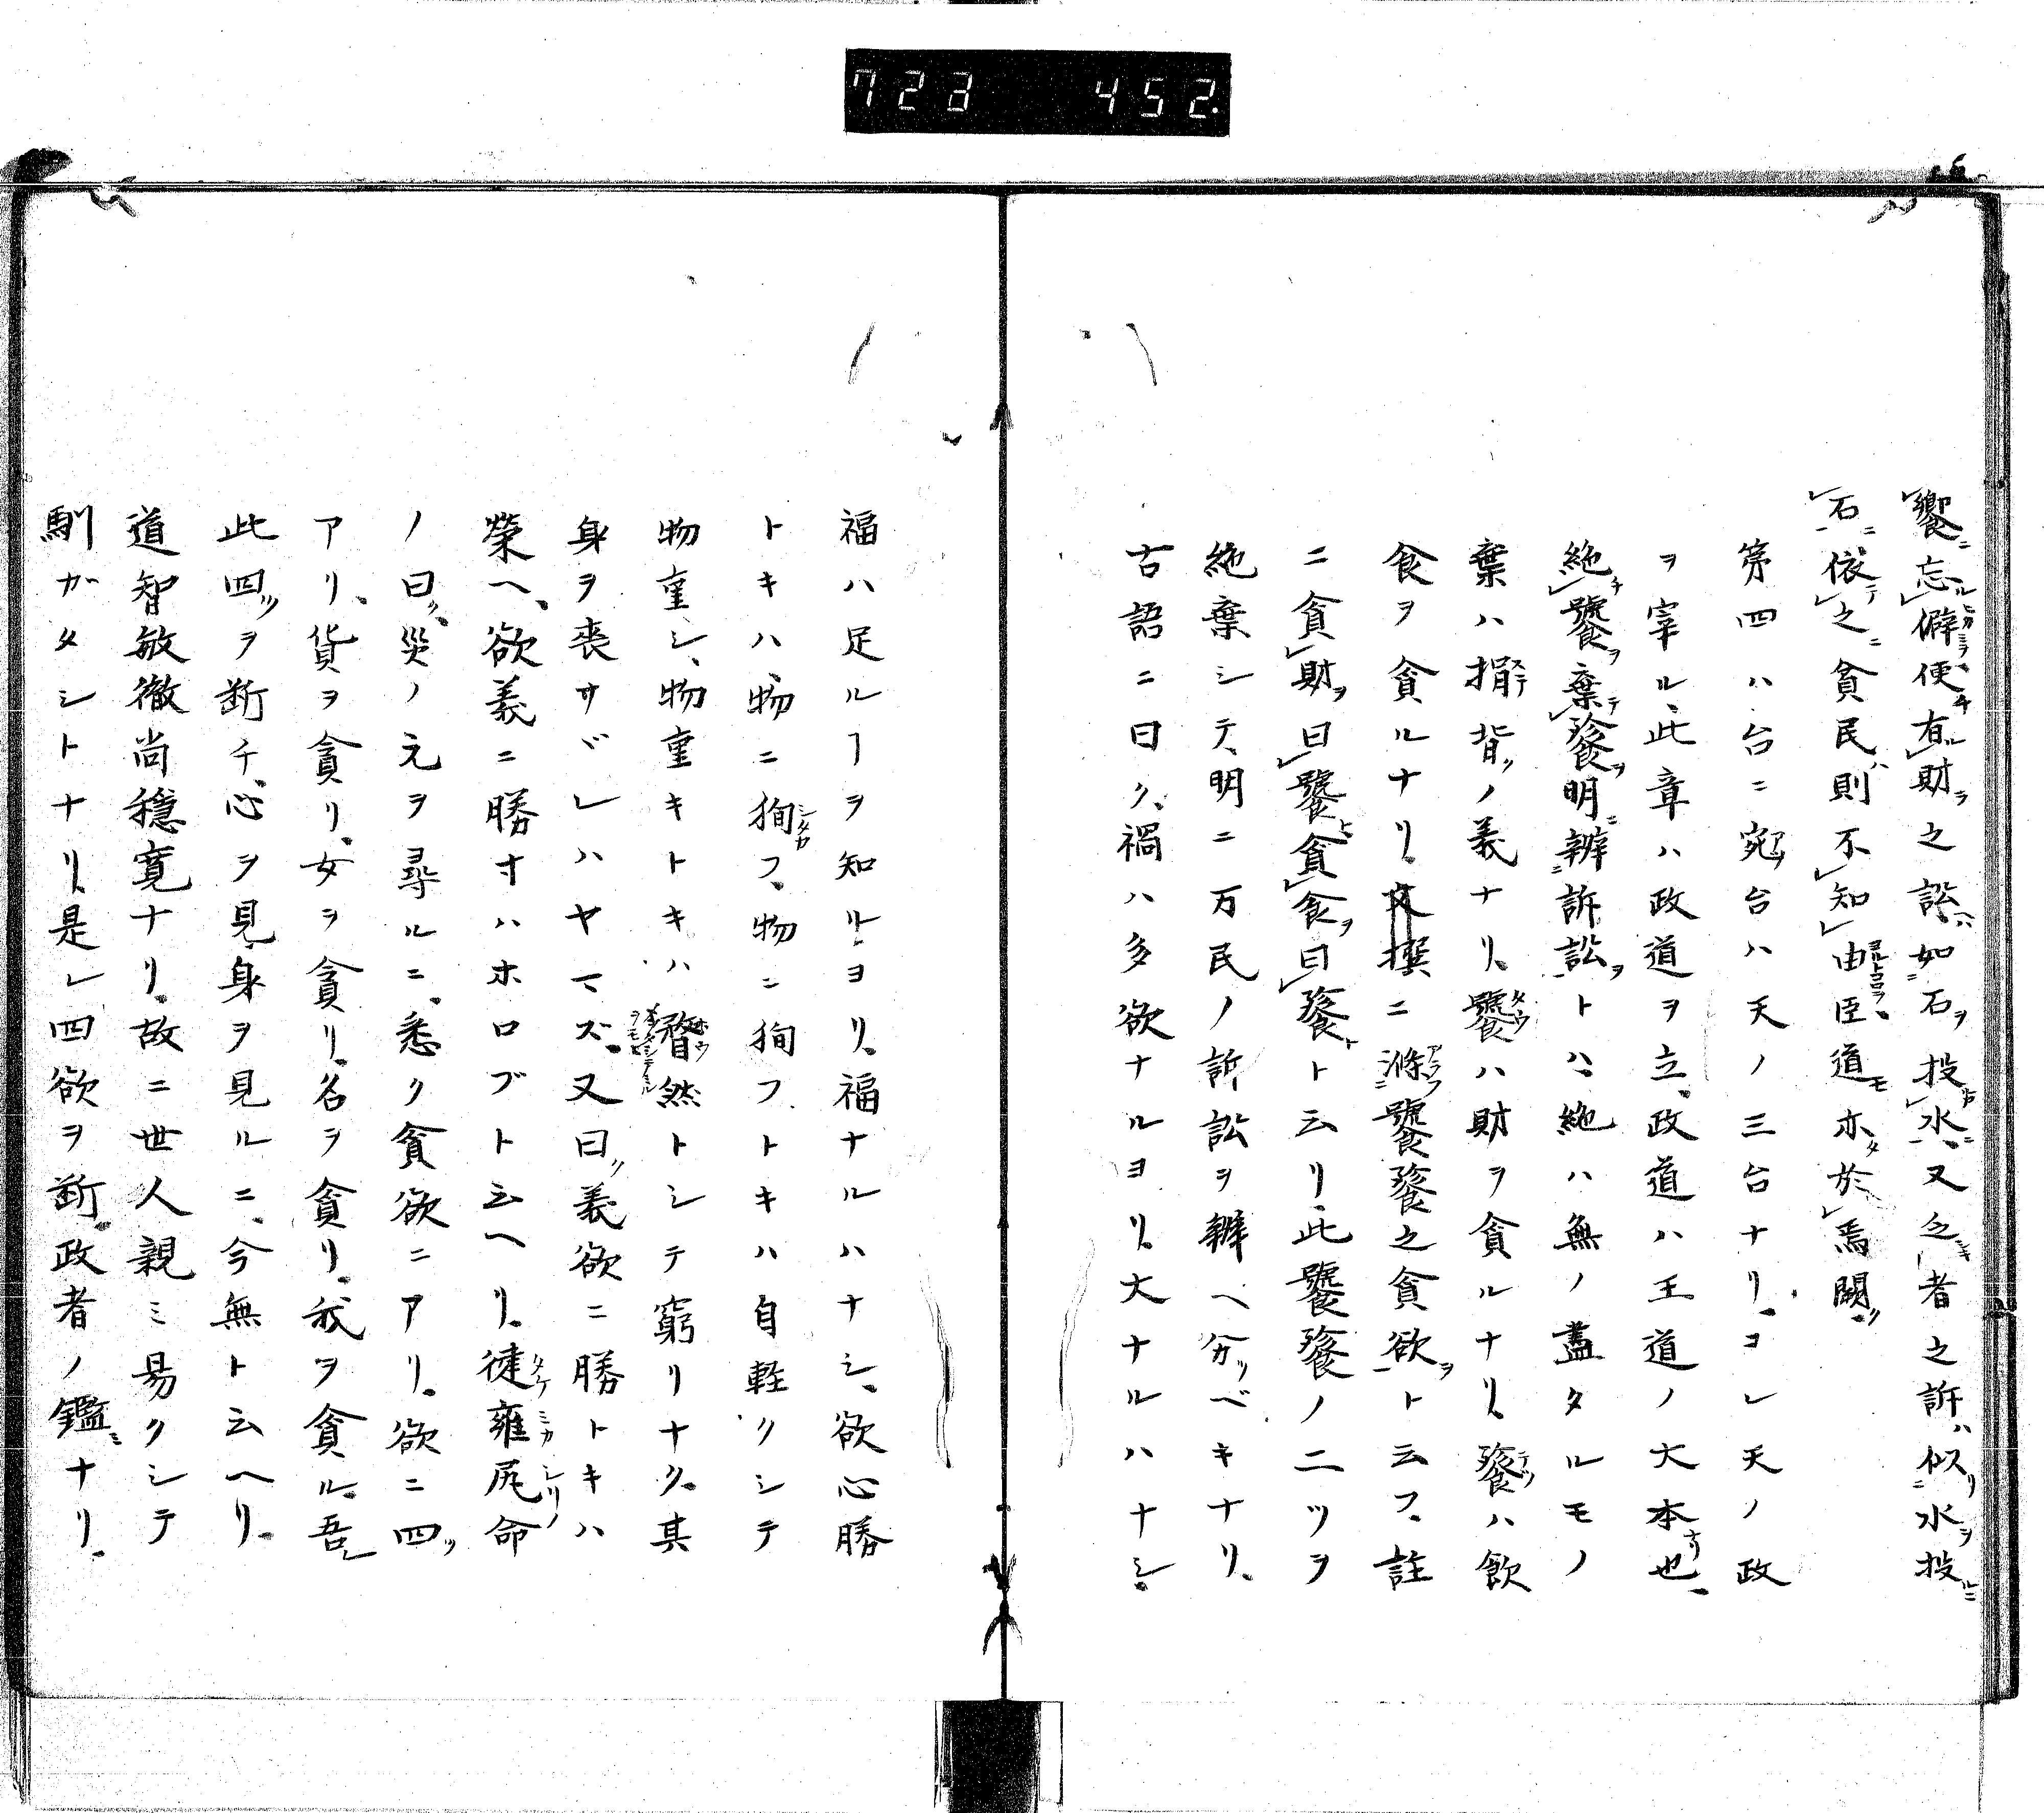 723 452.
饗忘僻便有財之訟如石投水又乏者之訴似水投
石依之貧民則不知由臣道亦於焉闕
第四ハ台ニ宛台ハ天ノ三台ナリ、ヨレ天ノ政
ヲ宰ル、此章ハ政道ヲ立、政道ハ王道ノ大本也、
絶饕棄餮明辨訴訟トハ、絶ハ無ノ盡タルモノ
棄ハ捐背ノ義ナリ、饕ハ財ヲ貪ルナリ、餮ハ飲
食ヲ貪ルナリ、撰ニ滌饕餮之貪欲ト云フ、註
ニ貪財曰饕貪食曰餮ト云リ、此饕餮ノ二ツヲ
絶棄シテ、明ニ万民ノ訴訟ヲ辨ヘ分ツベキナリ、
古語ニ曰ク、禍ハ多欲ナルヨリ、大ナルハナシ、
福ハ足ルヿヲ知ル、ヨリ、福ナルハナシ、欲心勝
トキハ、物ニ徇フ、物ニ徇フトキハ自軽クシテ
物重シ、物重キトキハ瞀然トシテ窮リナク、其
身ヲ喪サヾレハヤマズ、又曰ク義欲ニ勝トキハ
榮ヘ、欲義ニ勝寸ハホロブト云ヘリ、健雍尻命
ノ曰ク、災ノ元ヲ尋ルニ、悉ク貪欲ニアリ、欲ニ四ツ
アリ、貨ヲ貪リ、女ヲ貪リ、名ヲ貪リ、我ヲ貪ル、吾レ
此四ツヲ断チ、心ヲ見、身ヲ見ルニ、今無ト云ヘリ、
道智敏徹尚穏寛ナリ、故ニ世人親ミ易クシテ
馴ガタシトナリ、是レ四欲ヲ断、政者ノ鑑ナリ、